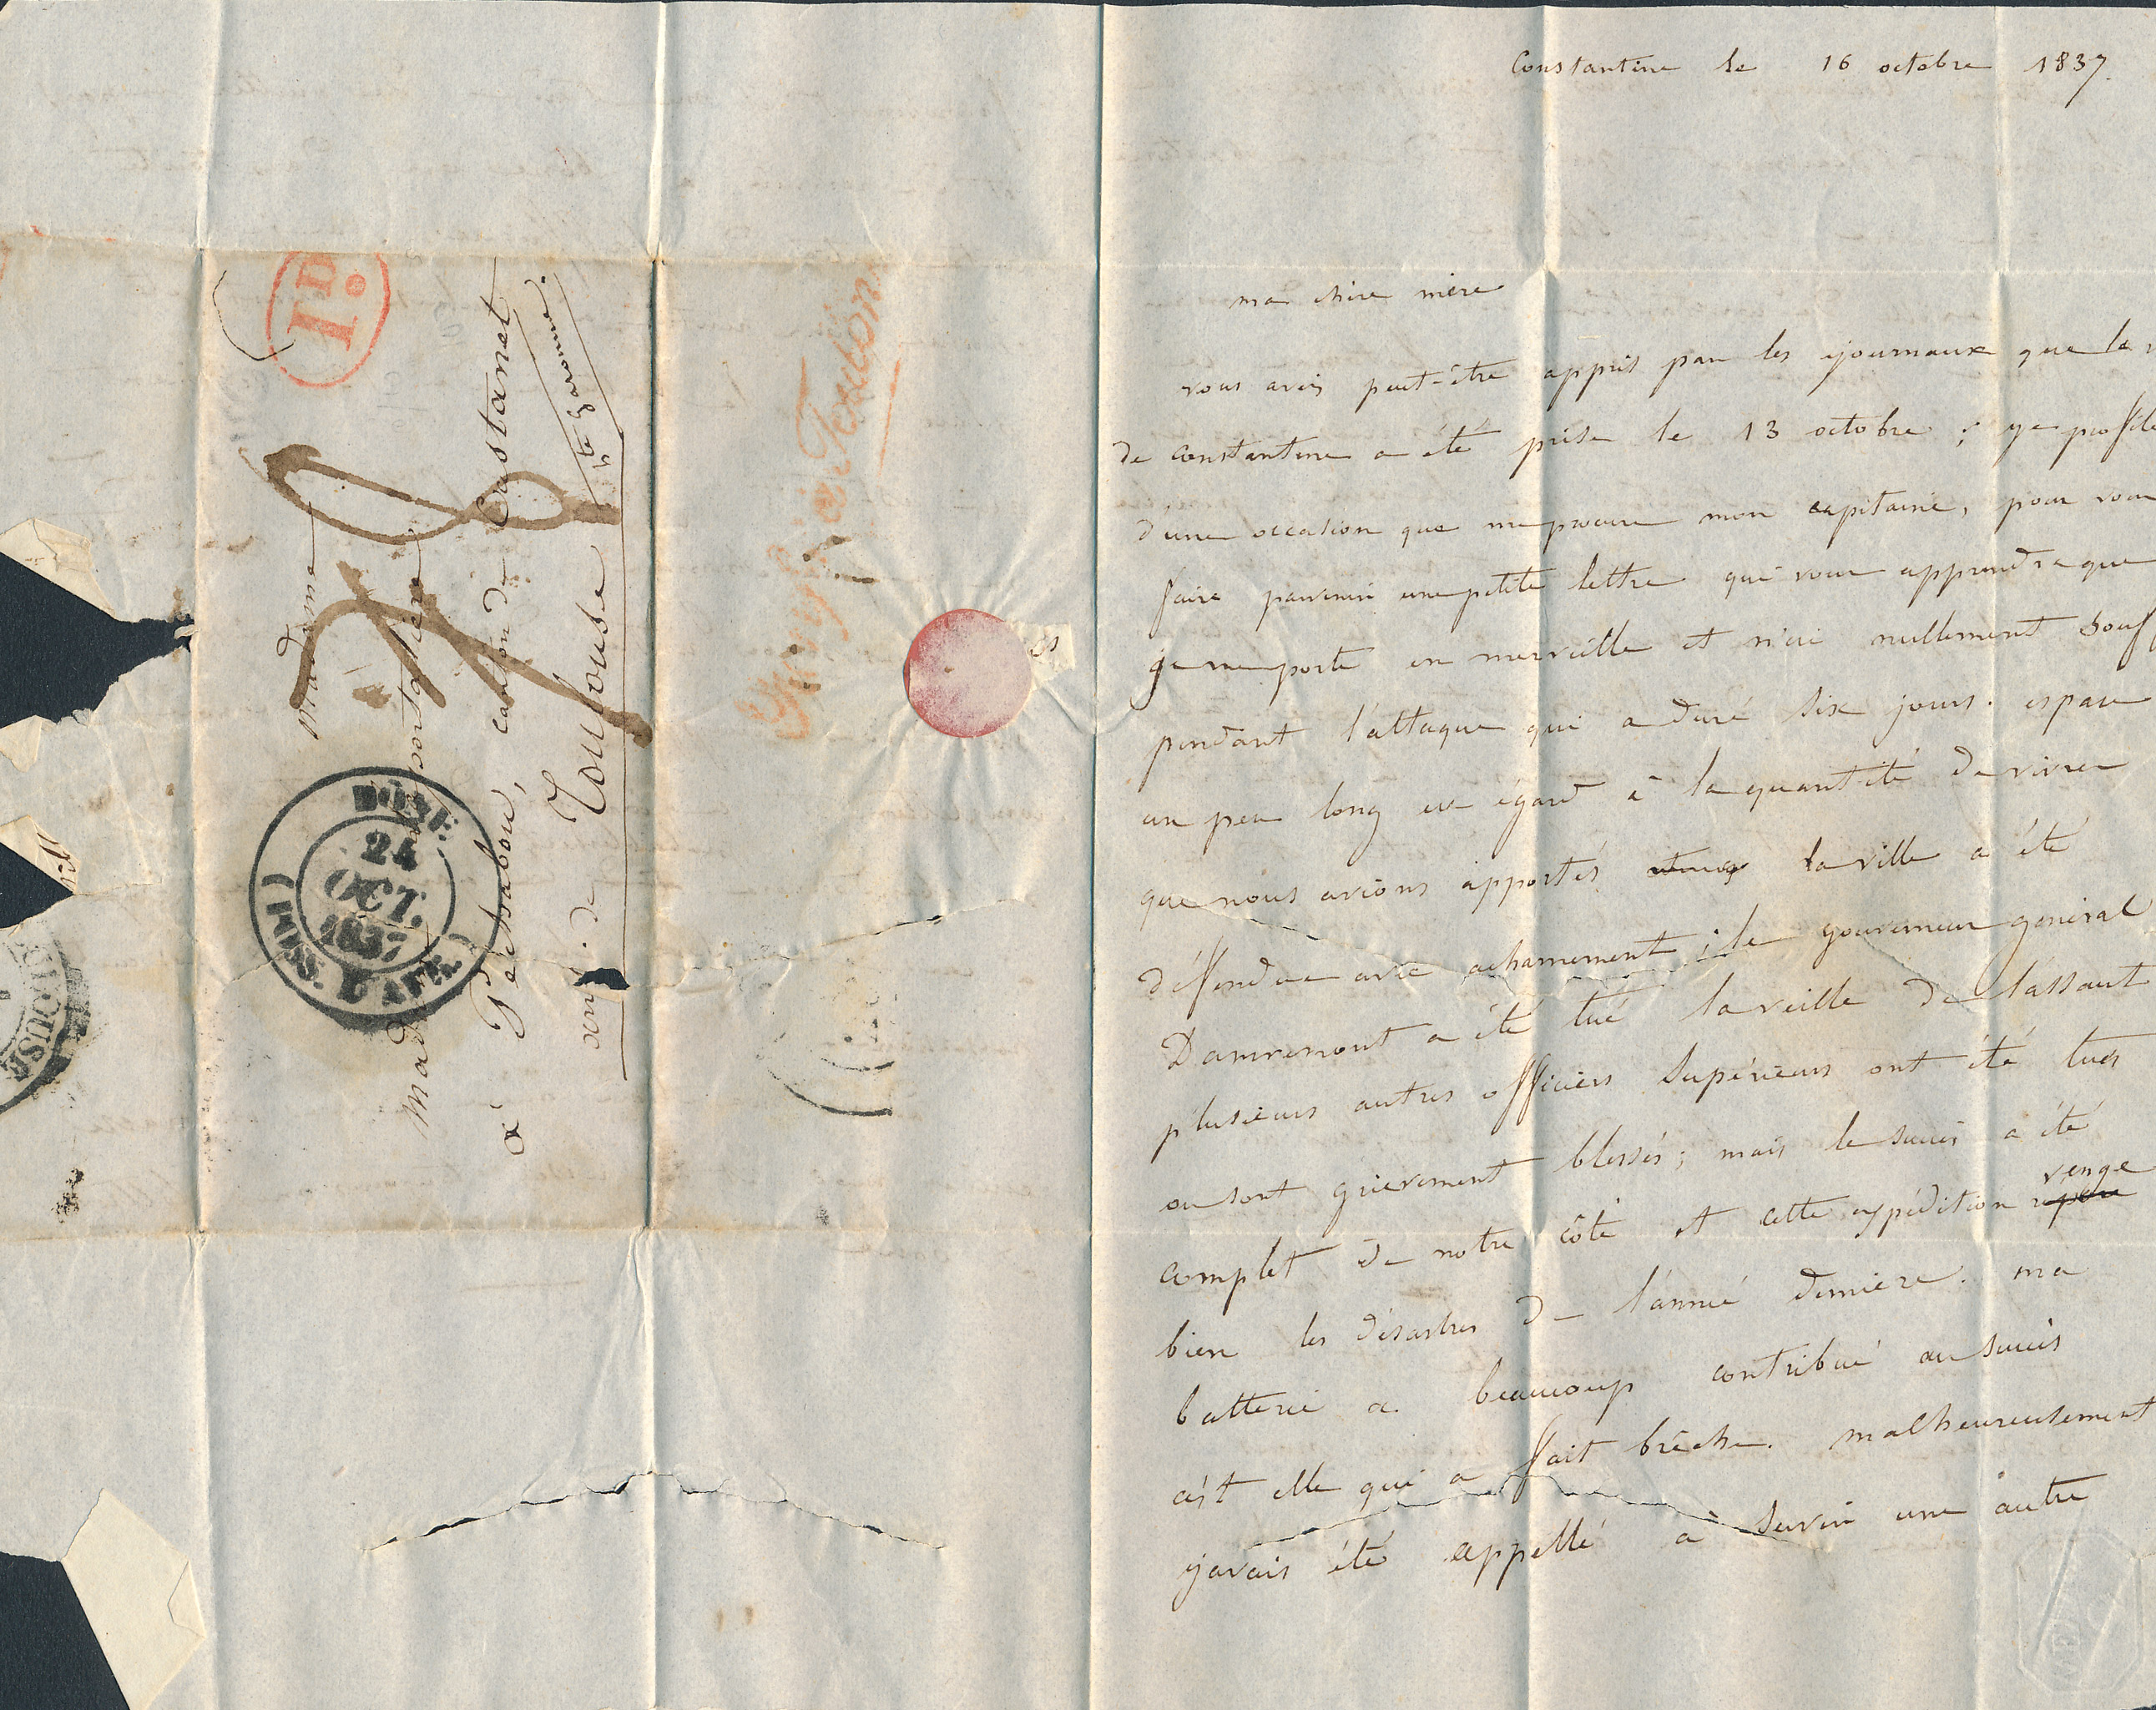 Constantine le 16 octobre 1837.
ma chère mère
vous avez peut-être appris par les journaux que la
de constantine a été prise le 13 octobre ; je profite
d'une occasion que me procure mon capitaine, pour vous
faire parvenir une petite lettre qui vous apprendra que
je me porte en merveille et n'ai nullement souf
pendant l'attaque qui a duré six jours. espace
un peu long eu égard à la quantité de vivres
que nous avions apportés la ville a été
déffendue avec acharnement ; le gouverneur général
Damremont a été tué la veille de l'assaut
plusieurs autres officiers supérieurs ont été tués
ou sont grièvement blessés ; mais le succès a été
complet de notre côté et cette expédition venge
bien les désastres de l'année dernière. ma
batterie a beaucoup contribué au succès
c'est elle qui a fait brèche. malheureusement
j'avais été appellé à servir une autre
Madame
Madame portalière
à Pechabou, canton de Castanet
par Toulouse
hte Garonne
I.D.
BÔNE
24
OCT.
1837
(POSS. D'AFR.)
Purifié à Toulon
TOULOUSE